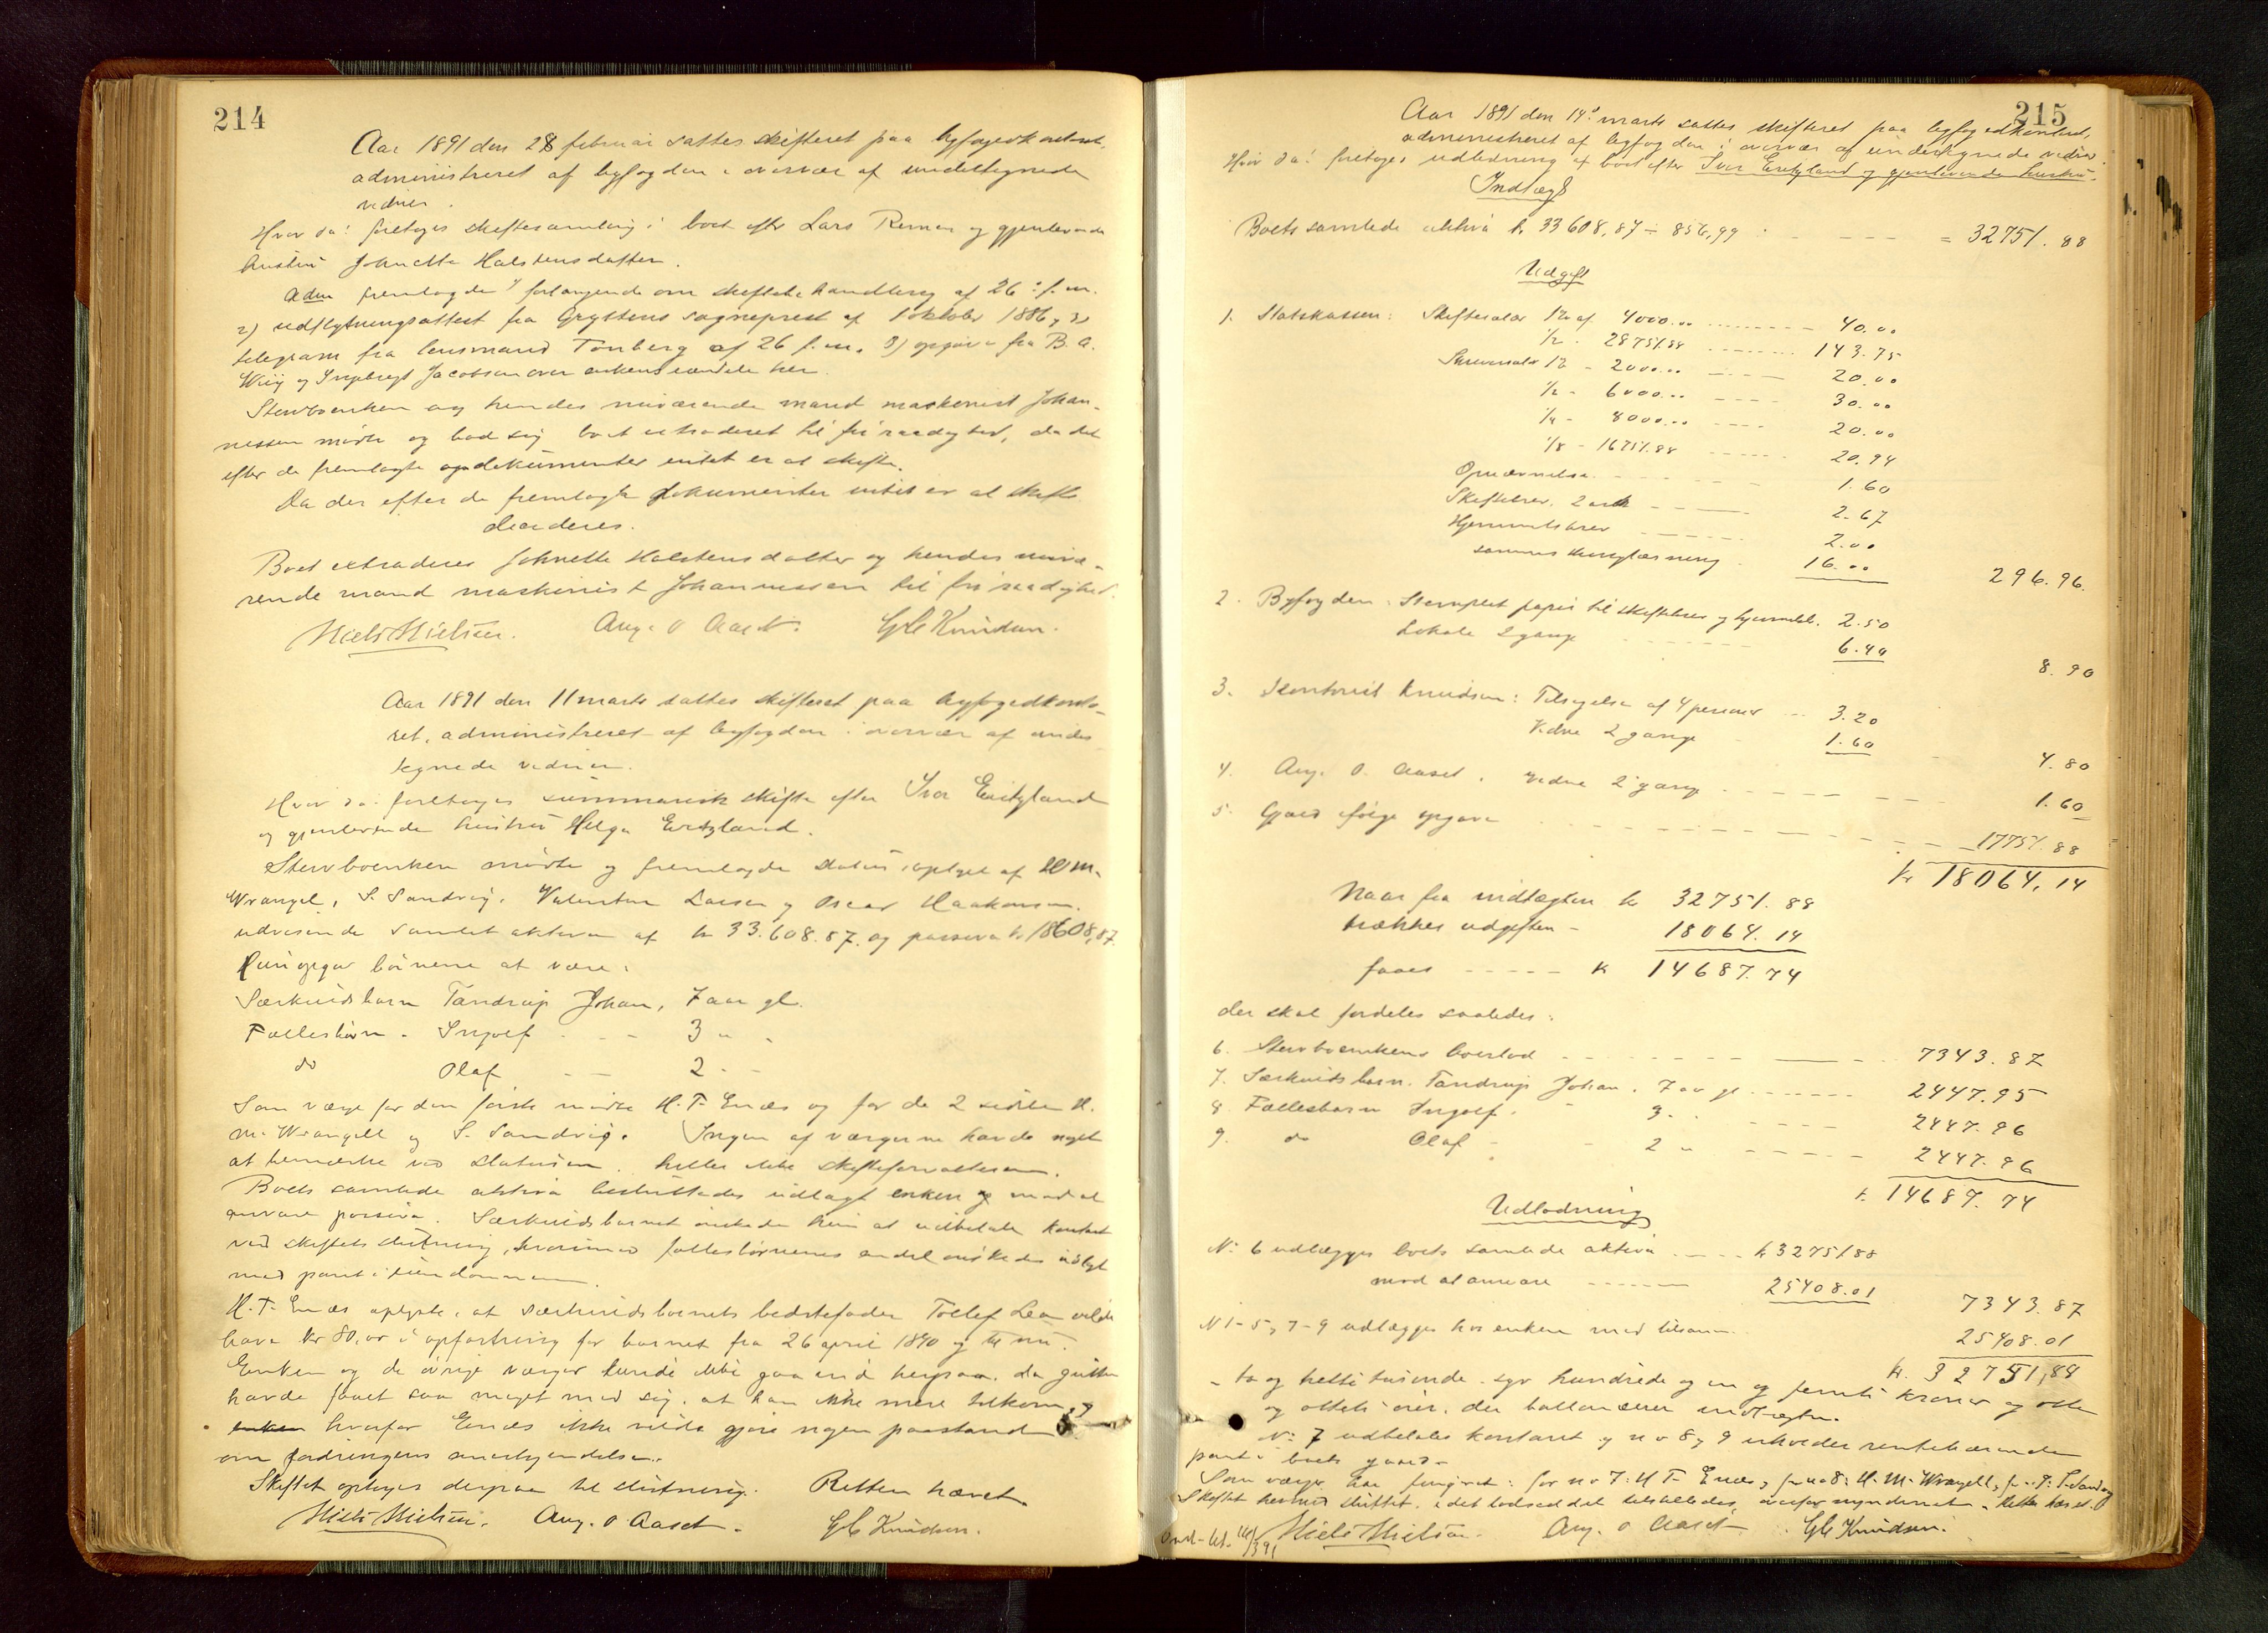 214
Aar 1891 den 28 februar sattes skifteret paa byfogedkontoret,
administreret af byfogden i overvær af undertegnede
vidner.
Hvor da: foretoges skiftesamling i boet efter Lars Reman og gjenlevende
hustru Johnette Halstensdatter.
Aden fremlagde 1) forlangende om skiftebehandling af 26 f.m.
2) udflytningsattest fra Gryttens sogneprest af 1 oktober 1886, 3)
telegram fra lensmand Tonberg af 26 f.m. 3) opgave fra B. A.
Wiig og Ingebregt Jacobsen over enkens eiendele her.
Stervboenken og hendes nuværende mand maskinist Johan-
nessen mødte og bad sig boet extraderet til fri raadighed, da det
efter de fremlagte dokumenter intet er at skifte.
Da der efter de fremlagte dokumenter intet er at skifte
decideres.
Boet extraderes Johnette Halstensdatter og hendes nuvæ-
rende mand maskinist Johannessen til fri raadighed.
Niels Nielsen. Aug. O Aaset. GC Knudsen.
Aar 1891 den 11 marts sattes skifteret paa byfogedkonto-
ret, administreret af byfogden i overvær af under
tegnede vidner.
Hvor da: foretoges summarisk skifte efter Ivar Eritzland
og gjenlevende hustru Helga Eritzland.
Stervboenken mødte og fremlagde status optaget af H M.
Wrangel, S. Sandvig, Valentin Larsen og Oscar Haakonsen.
udvisende samlet aktiva af kr 33.608.87. og passiva kr 18608,87
Hun opgav børnene at være:
Særkuldsbarn Tandrup Johan, 7 aar gl.
Fællesbørn - Ingolf - - 3 " -
do Olaf - - 2 - -
Som værge for den første mødte H. T. Enæs og for de 2 sidste H.
M. Wrangell og S. Sandvig. Ingen af værgerne havde noget
at bemærke ved statusen, heller ikke skifteforvalteren.
Boets samlede aktiva besluttedes udlagt enken mod at
ansvare passiva. Særkuldsbarnet ønskede hun at udbetale kontant
ved skiftets slutning, hvorimod fællesbørnenes andel ønskedes udlagt
med pant i eiendommen.
H. T. Enæs oplyste, at særkuldsbarnets bedstefader Tollef Lea vilde
have kr 80,00 i opfostring for barnet fra 26 april 1890 og til nu.
Enken og de øvrige værger kunde ikke gaa ind herpaa, da gutten
havde faaet saa meget med sig, at han ikke mere tilkom, og
enken hvorfor Enæs ikke vilde gjøre nogen paastand
om fordringens anerkjendelse.
Skiftet optoges derpaa til slutning. Retten hævet.
Niels Nielsen. Aug. O Aaset. GC Knudsen.
215
Aar 1891 den 14. marts sattes skifteret paa byfogedkontoret,
administreret af byfogden i overvær af undertegnede vidner.
Hvor da: foretoges udlodning af boet efter Ivar Eritzland og gjenlevende hustru.
Indtægt
Boets samlede aktiva kr. 33608,87 ÷ 856,99 - - - = 32751.88
Udgift
1. Statskassen: Skiftesalær 1% af 4000.00 40.00
1/2 - 28751.88 143.75
Skriversalær 1% - 2000.00 20.00
1/2 - 6000.00 30.00
1/4 - 8000.00 20.00
1/8 - 16751.88 20.94
Opnævnelse 1.60
Skiftebrev. 2 ark 2.67
Hjemmelsbrev 2.00
sammes thinglæsning 16.00 296.96.
2. Byfogden. Stemplet papir til skiftebrev og hjemmelsb. 2.50
Lokale 2 gange 6.40 8.90
3. Kontorist Knudsen: Tilsigelse af 4 personer 3.20
Vidne 2 gange 1.60 4.80
4. Aug. O. Aaset, vidne 2 gange 1.60
5. Gjæld ifølge opgave 17751.88
kr 18064,14
Naar fra indtægten kr 32751.88
trækkes udgiften - 18064.14
faaes - - - k 14687.74
der skal fordeles saaledes:
6. Stervboenkens boeslod 7343.87
7. Særkuldsbarn. Tandrup Johan. 7 aar gl. 2447.95
8. Fællesbarn Ingolf. - 3 - 2447.96
9. do Olaf - - 2 " 2447.96
k. 14687.74
Udlodning
No 6 udlægges boets samlede aktiva kr 32751.88
mod at ansvare 25408.01 7343.87
N 1-5, 7-9 udlægges hos enken med tilsam. 25408.01
kr. 32751,88
- to og tretti tusinde syv hundrede og en og femti kroner og otte
og otteti øre, der ballancerer indtægten.
No 7 udbetales kontant og no 8 og 9 erholder rentebærende
pant i boets gaard.
Som værger har fungeret: for no 7: H T Enæs, for no 8: H. M. Wrangell, for no 9: S. Sandvig
Skiftet hermed sluttet, idet lodseddel tilstilledes overformynderiet. Retten hævet.
Niels Nielsen. Aug. O Aaset GC Knudsen.